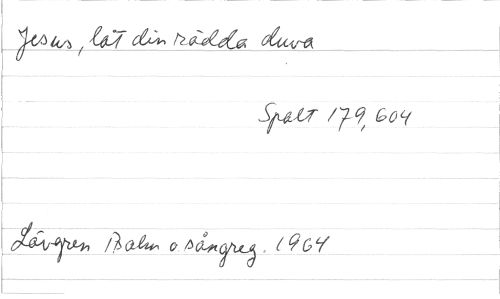 Jesus, låt din rädda duva
Spalt 179, 604
Lövgren Psalm o sångreg. 1964